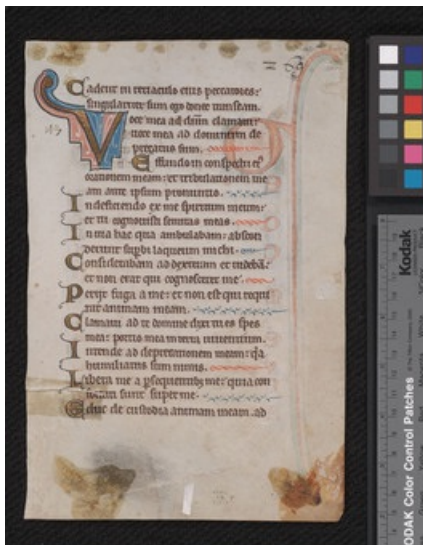 Cadent in retiaculo eius peccatores:
singulariter sum ego donec transeam.
Voce mea ad dnm clamaui:
uoce mea ad dominum de
precatus sum.
Effundo in conspectu ei
orationem meam: et tribulationem me
am ante ipsum pronuntio.
In deficiendo ex me spiritum meum:
et tu cognouisti semitas meas.
In uia hac qua ambulabam: abscon
derunt supbi laqueum michi.
Considerabam ad dexteram et uideba:
et non erat qui cognosceret me.
Periit fuga a me: et non est qui requi
rat animam meam.
Clamaui ad te domine dixi tu es spes
mea: portio mea in terra uiuentium.
Intende ad deprecationem meam: qa
humiliatus sum nimis.
Libera me a psequentib me: quia con
fortati sunt super me.
Educ de custodia animam meam ad
Kodak
KODAK Color Control Patches